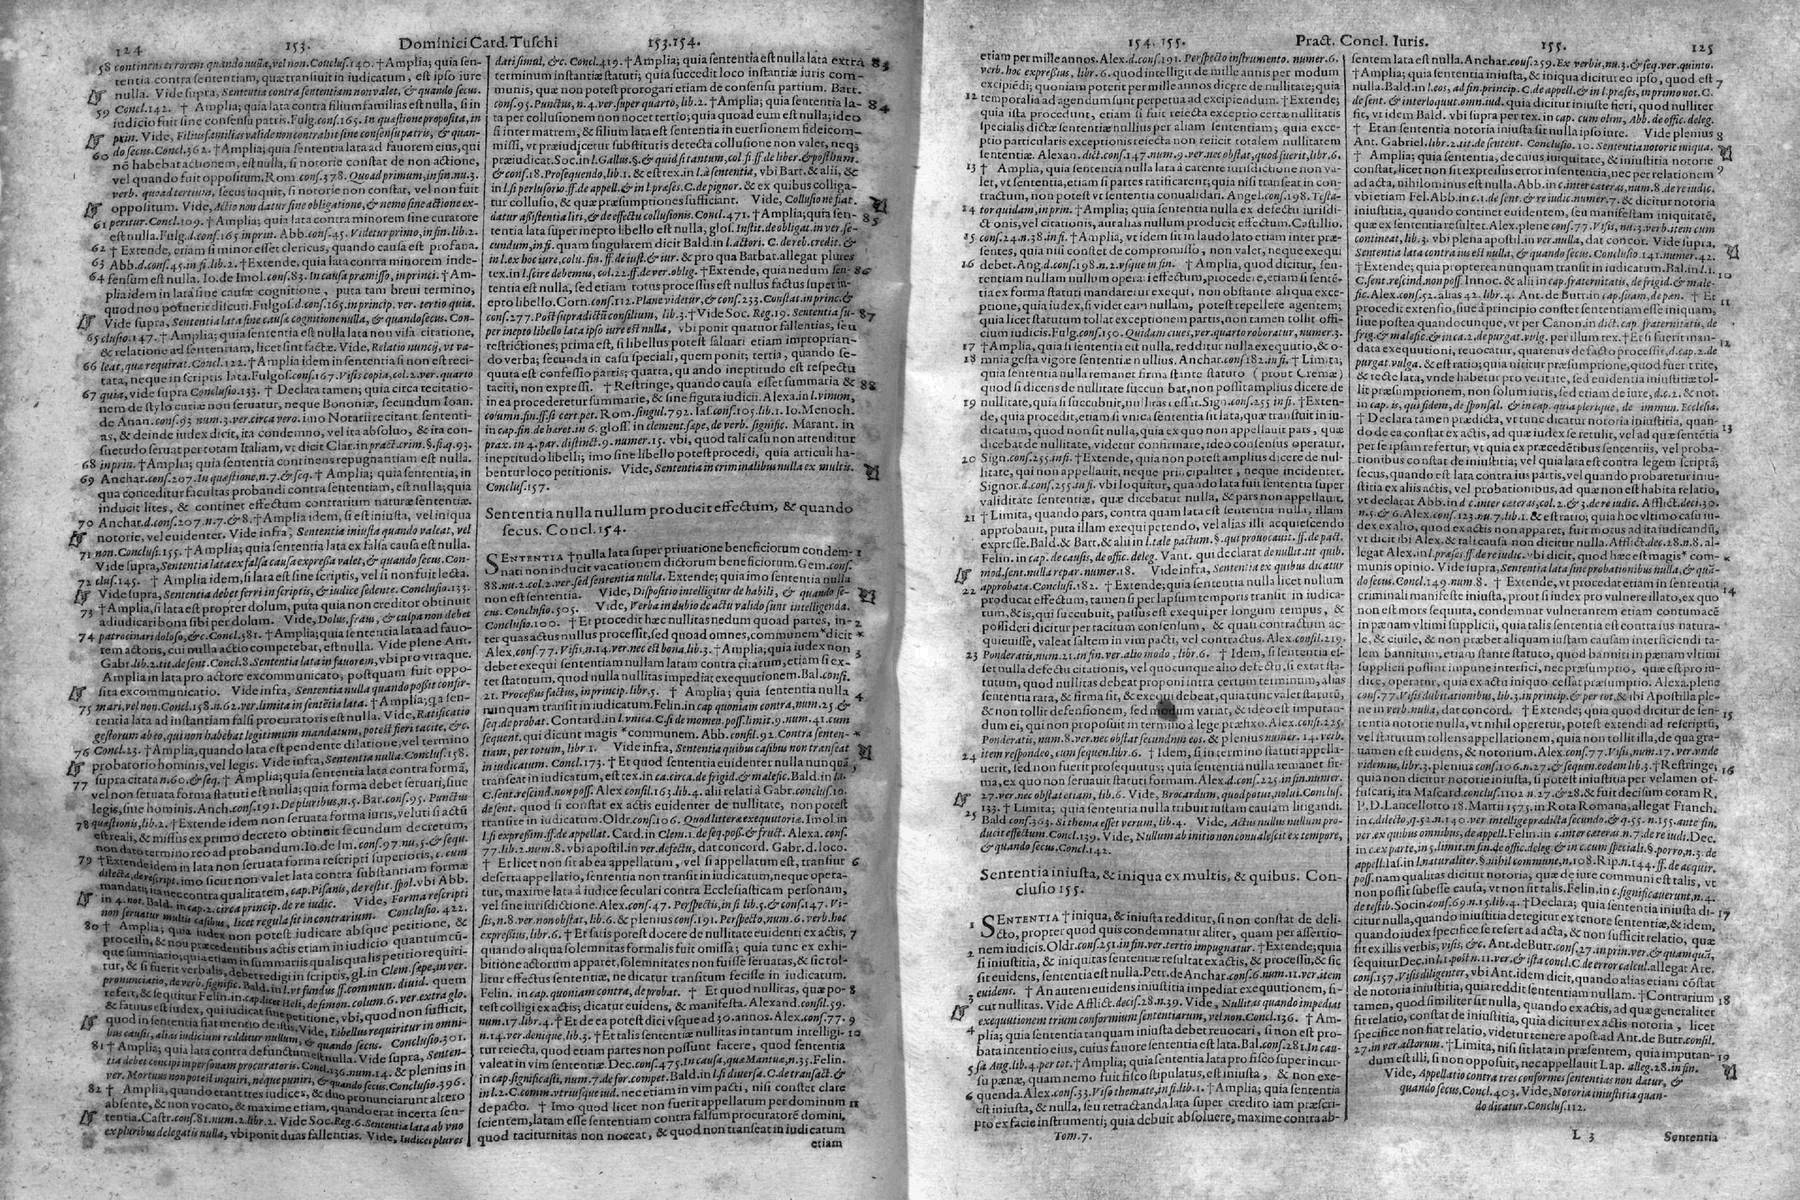 124 153. Dominici Card. Tuschi 153.154.
58 continent errorem quando nulla, vel non. Conclus. 140. †Amplia; quia sen-
tentia contra sententiam, quæ transiuit in iudicatum, est ipso iure
nulla. Vide supra, Sententia contra sententiam non valet, & quando secus.
59 Concl. 142. † Amplia; quia lata contra filiumfamilias est nulla, si in
iudicio fuit sine consensu patris. Fulg. conf. 165. In quæstione proposita, in
prin. Vide, Filiusfamilias valide non contrahit sine consensu patris, & quan-
60 do secus. Concl. 362. †Amplia; quia sententia lata ad fauorem eius, qui
nō habebat actionem, est nulla, si notorie constat de non actione,
vel quando fuit oppositum. Rom. conf. 378. Quod primum, in fin. nu. 3.
verb. quoad tertium, secus inquit, si notorie non constat, vel non fuit
oppositum. Vide, Actio non datur sine obligatione, & nemo sine actione ex-
61 peritur. Concl. 109. †Amplia; quia lata contra minorem sine curatore
est nulla. Fulg. d. conf. 165 in prin. Abb. conf. 45. Videtur primo, in fin. lib. 2.
62 † Extende, etiam si minor esset clericus, quando causa est profana.
63 Abb. d. conf. 45. in fi. lib. 2. †Extende, quia lata contra minorem inde-
64 fensum est nulla. Io. de Imol. conf. 83. In causa præmisso, in princi. †Am-
plia idem in lata sine causæ cognitione, puta tam breui termino,
quod non potuerit discuti. Fulgos. d. conf. 165. in princip. ver. tertio quia.
Vide supra, Sententia lata sine causa cognitione nulla, & quando secus. Con-
65 clusio. 147. †Amplia; quia sententia est nulla lata non visa citatione,
& relatione ad sententiam, licet sint factæ. Vide, Relatio nuncij, vt va-
66 leat, quæ requirat. Concl. 122. †Amplia idem in sententia si non est reci-
tata, neque in scriptis lata. Fulgos. conf. 167. Visis copia, col. 2. ver. quarto
67 quia, vide supra Conclusio. 133. † Declara tamen; quia circa recitatio-
nem de stylo curiæ non seruatur, neque Bononiæ, secundum Ioan.
de Anan. conf. 93 num. 3. ver. circa vero. imo Notarii recitant sententi-
as, & deinde iudex dicit, ita condemno, vel ita absoluo, & ita con-
suetudo seruat per totam Italiam, vt dicit Clar. in pract. crim. §. fi. q. 93.
68 in prin. †Amplia; quia sententia continens repugnantiam est nulla.
69 Anchar. conf. 207. In quæstione, n. 7. & seq. † Amplia; quia sententia, in
qua conceditur facultas probandi contra sententiam, est nulla; quia
inducit lites, & continet effectum contrarium naturæ sententiæ.
70 Anchar. d. conf. 207. n. 7. & 8. †Amplia idem, si est iniusta, vel iniqua
notorie, vel euidenter. Vide infra, Sententia iniusta quando valeat, vel
71 non. Conclus. 155. †Amplia; quia sententia lata ex falsa causa est nulla.
Vide supra, Sententia lata ex falsa causa expressa valet, & quando secus. Con-
72 clus. 145. † Amplia idem, si lata est sine scriptis, vel si non fuit lecta.
Vide supra, Sententia debet ferri in scriptis, & iudice sedente. Conclusio. 133.
73 †Amplia, si lata est propter dolum, puta quia non creditor obtinuit
adiudicari bona sibi per dolum. Vide, Dolus, fraus, & culpa non debet
74 patrocinari doloso, &c. Concl. 581. †Amplia; quia sententia lata ad fauo-
rem actoris, cui nulla actio competebat, est nulla. Vide plene Ant.
Gabr. lib. 2. tit. de sent. Concl. 8. Sententia lata in fauorem, vbi pro vtraque.
Amplia in lata pro actore excommunicato, postquam fuit oppo-
sita excommunicatio. Vide infra, Sententia nulla quando possit confir-
75 mari, vel non. Concl. 158. n. 62. ver. limita in sententia lata. †Amplia; qa sen-
tentia lata ad instantiam falsi procuratoris est nulla. Vide, Ratificatio
gestorum ab eo, qui non habebat legitimum mandatum, potest fieri tacite, &c.
76 Concl. 23. †Amplia, quando lata est pendente dilatione, vel termino
probatorio hominis, vel legis. Vide infra, Sententia nulla. Conclus. 158.
77 supra citata n. 60. & seq. † Amplia; quia sententia lata contra formā,
vel non seruata forma statuti est nulla; quia forma debet seruari, siue
legis, siue hominis. Anch. conf. 191. De pluribus, n. 5. Bar. conf. 95. Punctus
78 quæstionis, lib. 2. †Extende idem non seruata forma iuris, veluti si actū
est reali, & missus ex primo decreto obtinuit secundum decretum,
non dato termino reo ad probandum. Io. de Im. conf. 97. nu. 5. & sequ.
79 †Extende idem in lata non seruata forma rescripti superioris, c. cum
dilecta, de rescript. imo sicut non valet lata contra substantiam formæ
mandati, ita nec contra qualitatem, cap. Pisanis, de restit. spol. vbi Abb.
in 4. not. Bald. in cap. 2. circa princip. de re iudic. Vide, Forma rescripti
non seruatur multis casibus, licet regula sit in contrarium. Conclusio. 422.
80 † Amplia; quia iudex non potest iudicare absque petitione, &
processu, & nou præcedentibus actis etiam in iudicio quantumcū-
que summario; quia etiam in summariis qualis qualis petitio requiri-
tur, & si fuerit verbalis, debet redigi in scriptis, gl. in Clem. sæpe, in ver.
pronunciatio, de verb. signific. Bald. in l. vt fundus ff. commun. diuid. quem
refert, & sequitur Felin. in cap. dicet Heli, de simon. colum. 6. ver. extra glo.
& fatuus est iudex, qui iudicat sine petitione, vbi, quod non sufficit,
quod in sententia fiat mentio de istis, Vide, Libellus requiritur in omni-
bus causis, alias iudicium redditur nullum, & quando secus. Conclusio. 301.
81 † Amplia; quia lata contra defunctum est nulla. Vide supra, Senten-
tia debet concipi in personam procuratoris. Concl. 136. num. 14. & plenius in
ver. Mortuus non potest inquiri, neque puniri, & quando secus. Conclusio. 396.
82 † Amplia, quando erant tres iudices, & duo pronunciarunt altero
absente, & non vocato, & maxime etiam, quando erat incerta sen-
tentia. Castr. conf. 81. num. 2. lib. 2. Vide Soc. Reg. 6. Sententia lata ab vno
ex pluribus delegatis nulla, vbi ponit duas fallentias. Vide, Iudices plures
dati simul, &c. Concl. 419. †Amplia; quia sententia est nulla lata extra 83
terminum instantiæ statuti; quia succedit loco instantiæ iuris com-
munis, quæ non potest prorogari etiam de consensu partium. Bart.
conf. 95. Punctus, n. 4. ver. super quarto, lib. 2. †Amplia; quia sententia la- 84
ta per collusionem non nocet tertio; quia quoad eum est nulla; ideo
si inter matrem, & filium lata est sententia in euersionem fideicom-
missi, vt præiudicetur substitutis detecta collusione non valet, neq;
præiudicat. Soc. in l. Gallus. §. & quid si tantum, col. fi ff. de liber. & posthum.
& conf. 18. Prosequendo, lib. 1. & est tex. in l. à sententia, vbi Bart. & alii, &
in l. si perlusorio. ff. de appell. & in l. præses. C. de pignor. & ex quibus colliga-
tur collusio, & quæ præsumptiones sufficiant. Vide, Collusione fiat.
datur assistentia liti, & de effectu collusionis. Concl. 471. †Amplia; quia sen- 85
tentia lata super inepto libello est nulla, glos. Instit. de obligat. in ver. se-
cundum, in fi. quam singularem dicit Bald. in l. actori. C. de reb. credit. &
in l. ex hoc iure, colu. fin. ff. de iust. & iur. & pro qua Barbat. allegat plures
tex. in l. scire debemus, col. 22. ff. de ver. oblig. †Extende, quia nedum sen- 86
tentia est nulla, sed etiam totus processus est nullus factus super in-
epto libello. Corn. conf. 112. Plane videtur, & conf. 233. Constat. in princ. &
conf. 277. Post supradictū consilium, lib. 3. †Vide Soc. Reg. 19. Sententia su- 87
per inepto libello lata ipso iure est nulla, vbi ponit quatuor fallentias, seu
restrictiones; prima est, si libellus potest saluari etiam improprian-
do verba; secunda in casu speciali, quem ponit; tertia, quando se-
quuta est confessio partis; quarta, quando ineptitudo est respectu
taciti, non expressi. † Restringe, quando causa esset summaria & 88
in ea procederetur summarie, & sine figura iudicii. Alexa. in l. vinum,
column. fin. ff. si cert. pet. Rom. singul. 792. Ias. conf. 105. lib. 1. Io. Menoch.
in cap. fin de haret. in 6. gloss. in clement. sæpe, de verb. signific. Marant. in
prax. in 4. par. distinct. 9. numer. 15. vbi, quod tali casu non attenditur
ineptitudo libelli; imo sine libello potest procedi, quia articuli ha-
bentur loco petitionis. Vide, Sententia in criminalibus nulla ex multis.
Conclus. 157.
Sententia nulla nullum producit effectum, & quando
secus. Concl. 154.
SENTENTIA †nulla lata super priuatione beneficiorum condem- 1
nati non inducit vacationem dictorum beneficiorum. Gem. conf.
88. nu. 2. col. 2. ver. sed sententia nulla. Extende; quia imo sententia nulla
non est sententia. Vide, Dispositio intelligitur de habili, & quando se-
cus. Conclusio. 505. Vide, Verba in dubio de actu valido sunt intelligenda.
Conclusio. 100. †Et procedit hæc nullitas nedum quoad partes, in- 2
ter quas actus nullus processit, sed quoad omnes, communem * dicit *
Alex. conf. 77. Visis, n. 14. ver. nec est bona, lib. 3. †Amplia; quia iudex non 3
debet exequi sententiam nullam latam contra citatum, etiam si ex-
stet statutum, quod nulla nullitas impediat exequutionem. Bal. consi.
21. Processus factus, in princip. lib. 5. † Amplia; quia sententia nulla 4
nunquam transit in iudicatum. Felin. in cap quoniam contra, num. 25. &
seq. de probat. Contard. in l. vnica. C. si de momen. poss. limit. 9. num. 41. cum
sequent. qui dicunt magis * communem. Abb. consil. 92. Contra senten- *
tiam, per totum, libr 1. Vide infra, Sententia quibus casibus non transeat
in iudicatum. Concl. 173. †Et quod sententia euidenter nulla nunquā 5
transeat in iudicatum, est tex. in ca. circa. de frigid. & malefic. Bald. in la.
C. sent. rescind. non poss. Alex consil. 163. lib. 4. alii relati à Gabr. conclu. 10.
de sent. quod si constat ex actis euidenter de nullitate, non potest
transire in iudicatum. Oldr. conf. 106. Quod literæ exequutoriæ. Imol. in
l. si expressim. ff. de appellat. Card. in Clem. 1. de seq. poss. & fruct. Alexa. conf.
77. lib. 2. num. 8. vbi apostil. in ver. defectu, dat concord. Gabr. d. loco.
† Et licet non sit ab ea appellatum, vel si appellatum est, transiit 6
deserta appellatio, sententia non transit in iudicatum, neque opera-
tur, maxime lata à iudice seculari contra Ecclesiasticam personam,
vel sine iurisdictione. Alex. conf. 47. Perspectis, in fi lib. 5. & conf. 147. Vi-
sis, n. 8. ver. non obstat, lib. 6. & plenius conf. 191. Perspecto, num. 6. verb. hoc
expressius, lib. 6. †Et satis potest docere de nullitate euidenti ex actis, 7
quando aliqua solemnitas formalis fuit omissa; quia tunc ex exhi-
bitione actorum apparet, solemnitates non fuisse seruatas, & sic tol-
lit effectus sententiæ, ne dicatur transitum fecisse in iudicatum.
Felin. in cap. quoniam contra, de probat. † Et quod nullitas, quæ po- 8
test colligi ex actis; dicatur euidens, & manifesta. Alexand. consil. 59.
num. 17. lib. 4. †Et de ea potest dici vsque ad 30. annos. Alex. conf. 77. 9
n. 14. ver. denique, lib. 3. †Et talis sententiæ nullitas in tantum intelligi- 10
tur reiecta, quod etiam partes non possunt facere, quod sententia
valeat in vim sententiæ. Dec. conf. 475. In causa, quæ Mantuæ, n. 35. Felin.
in cap. significasti, num. 7. de for. compet. Bald. in l. si diuersa. C. de transact. &
in l. 2. C. comm. vtriusque iud. nec etiam in vim pacti, nisi constet clare
de pacto. † Imo quod licet non fuerit appellatum per dominum 11
scientem, latam esse sententiam contra falsum procuratorē domini,
quod taciturnitas non noceat, & quod non transeat in iudicatum
etiam
154. 155. Pract. Concl. Iuris. 155. 125
etiam per mille annos. Alex. d. conf. 191. Perspecto instrumento. numer. 6.
verb. hoc expressius, libr. 6. quod intelligit de mille annis per modum
excipiēdi; quoniam poterit per mille annos dicere de nullitate; quia
12 temporalia ad agendum sunt perpetua ad excipiendum. †Extende;
quia ista procedunt, etiam si fuit reiecta exceptio certæ nullitatis
specialis dictæ sententiæ nullius per aliam sententiam; quia exce-
ptio particularis exceptionis reiecta non reiicit totalem nullitatem
sententiæ. Alexan. dict. conf. 147. num. 9. ver. nec obstat, quod fuerit, lib. 6.
13 † Amplia; quia sententia nulla lata à carente iurisdictione non va-
let, vt sententia, etiam si partes ratificarent; quia nisi transeat in con-
tractum, non potest vt sententia conualidari. Angel. conf. 198. Testa-
14 tor quidam, in prin. †Amplia; quia sententia nulla ex defectu iurisdi-
ctionis, vel citationis, aut alias nullum producit effectum. Castillio.
15 conf. 24. n. 38. in fi. †Amplia, vt idem sit in laudo lato etiam inter præ-
sentes, quia nisi constet de compromisso, non valet, neque exequi
16 debet. Ang. d. conf. 198. n. 2. vsque in fin. † Amplia, quod dicitur, sen-
tentiam nullam nullum operari effectum, procedere, etiam si sentē-
tia ex forma statuti mandaretur exequi, non obstante aliqua exce-
ptione, quia iudex, si videt eam nullam, potest repellere agentem;
quia licet statutum tollat exceptionem partis, non tamen tollit offi-
cium iudicis. Fulg. conf. 150. Quidam ciues, ver. quarto roboratur, numer. 3.
17 †Amplia; quia sententia nulla, redditur nulla exequutio, & o-
18 mnia gesta vigore sententiæ nullius. Anchar. conf. 182. in fi. † Limita;
quia sententia nulla remanet firma stante statuto (prout Cremæ)
quod si dicens de nullitate succumbat, non possit amplius dicere de
19 nullitate, quia si succubuit, nullitas cessat. Sign. conf. 255. in fi. †Exten-
de, quia procedit, etiam si vnica sententia sit lata, quæ transiuit in iu-
dicatum, quod non sit nulla, quia ex quo non appellauit pars, quæ
dicebat de nullitate, videtur confirmare, ideo consensus operatur.
20 Sign. conf. 255. in fi. †Extende, quia non potest amplius dicere de nul-
litate, qui non appellauit, neque principaliter, neque incidenter.
Signor. d. conf. 255. in fi. vbi loquitur, quando lata fuit sententia super
validitate sententiæ, quæ dicebatur nulla, & pars non appellauit.
21 † Limita, quando pars, contra quam lata est sententia nulla, illam
approbauit, puta illam exequi petendo, vel alias illi acquiescendo
expresse. Bald. & Bart. & alii in l. tale pactum. §. qui prouocauit. ff. de pact.
Felin. in cap. de causis, de offic. deleg. Vant. qui declarat de nullit. tit. quib.
mod. sent. nulla repar. numer. 18. Vide infra, Sententia ex quibus dicatur
22 approbata. Conclus. 182. † Extende; quia sententia nulla licet nullum
producat effectum, tamen si per lapsum temporis transit in iudica-
tum, & is, qui succubuit, passus est exequi per longum tempus, &
possideri dicitur per tacitum consensum, & quasi contractum ac-
quieuisse, valeat saltem in vim pacti, vel contractus. Alex. consil. 219.
23 Ponderatis, num. 21. in fin. ver. alio modo, libr. 6. † Idem, si sententia es-
set nulla defectu citationis, vel quocunque alio defectu, si extat sta-
tutum, quod nullitas debeat proponi intra certum terminum, alias
sententia rata, & firma sit, & exequi debeat, quia tunc valet statutū,
& non tollit defensionem, sed modum variat, & ideo est imputan-
dum ei, qui non proposuit in termino à lege præfixo. Alex. conf. 225.
Ponderatis, num. 8. ver. nec obstat secundum eos. & plenius num. 14. verb.
24 item respondeo, cum sequen. lib. 6. † Idem, si in termino statuti appella-
uerit, sed non fuerit prosequutus; quia sententia nulla remanet fir-
ma, ex quo non seruauit statuti formam. Alex. d. conf. 225. in fin. numer.
27. ver. nec obstat etiam, lib. 6. Vide, Brocardum, quod potus, nolui. Conclus.
133. † Limita; quia sententia nulla tribuit iustam causam litigandi.
25 Bald. conf. 363. Si thema esset verum, lib. 4. Vide, Actus nullus nullum pro-
ducit effectum. Concl. 139. Vide, Nullum ab initio non conualescit ex tempore,
& quando secus. Concl. 142.
Sententia iniusta, & iniqua ex multis, & quibus. Con-
clusio 155.
1 SENTENTIA † iniqua, & iniusta redditur, si non constat de deli-
cto, propter quod quis condemnatur aliter, quam per assertio-
nem iudicis. Oldr. conf. 251. in fin. ver. tertio impugnatur. †Extende; quia
2 si iniustitia, & iniquitas sententiæ resultat ex actis, & processu, & sic
sit euidens, sententia est nulla. Petr. de Anchar. conf. 6. num. 11. ver. item
3 euidens. † An autem euidens iniustitia impediat exequutionem, si-
cut nullitas. Vide Afflict. decis. 28. n. 39. Vide, Nullitas quando impediat
exequutionem trium conformium sententiarum, vel non. Concl. 136. † Am-
4 plia; quia sententia tanquam iniusta debet reuocari, si non est pro-
bata intentio eius, cuius fauore est sententia lata. Bal. conf. 281. In cau-
5 sa Aug. lib. 4. per tot. † Amplia; quia sententia lata pro fisco super incur-
su pœnæ, quam nemo fuit fisco stipulatus, est iniusta, & non exe-
6 quenda. Alex. conf. 33. Viso themate, in fi lib. 1. † Amplia; quia sententia
est iniusta, & nulla, seu retractanda lata super credito iam præscri-
pto ex facie instrumenti; quia debuit absoluere, maxime contra ab-
Tom. 7.
sentem lata. Anchar. conf. 259. Ex verbis, nu. 3. & seq. ver. quinto.
†Amplia; quia sententia iniusta, & iniqua dicitur eo ipso, quod est 7
nulla. Bald. in l. eos, ad fin. princip. C. de appell. & in l. præses, in primo not. C.
de sent. & interloquut. omn. iud. quia dicitur iniuste fieri, quod nulliter
fit, vt idem Bald. vbi supra per tex. in cap. cum olim, Abb. de offic. deleg.
† Et an sententia notoria iniusta sit nulla ipso iure. Vide plenius 8
Ant. Gabriel. libr. 2. tit. de sentent. Conclusio. 10. Sententia notorie iniqua.
† Amplia; quia sententia, de cuius iniquitate, & iniustitia notorie 9
constat, licet non sit expressus error in sententia, nec per relationem
ad acta, nihilominus est nulla. Abb. in c. inter cæteras, num. 8. de re iudic.
vbi etiam Fel. Abb. in c. 1. de sent. & re iudic. numer. 7. & dicitur notoria
iniustitia, quando continet euidentem, seu manifestam iniquitatē,
quæ ex sententia resultet. Alex. plene conf. 77. Visis, nu. 3. verb. item cum
contineat, lib. 3. vbi plena apostil. in ver. nulla, dat concor. Vide supra,
Sententia contra ius est nulla, & quando secus. Conclusio. 141. numer. 42.
†Extende; quia propterea nunquam transit in iudicatum. Bal. in l. 1. 10
C. sent. rescind. non poss. Innoc. & alii in cap. fraternitatis, de frigid. & male-
fic. Alex. conf. 52. alias 42. libr. 4. Ant. de Butr. in cap. suam, de pœn. † Et 11
procedit extensio, siue à principio constet sententiam esse iniquam,
siue postea quandocunque, vt per Canon. in dict. cap. fraternitatis, de
frig. & malefic. & in ca. 2. de purgat. vulg. per illum tex. †Et si fuerit man- 12
data exequutioni, reuocatur, quatenus de facto processit, d. cap. 2. de
purgat. vulga. & est ratio; quia nititur præsumptione, quod fuerit rite,
& recte lata, vnde habetur pro veritate, sed euidentia iniustitiæ tol-
lit præsumptionem, non solum iuris, sed etiam de iure, d. c. 2. & not.
in cap. is, qui fidem, de sponsal. & in cap. quia plerique, de immun. Ecclesia.
†Declara tamen prædicta, vt tunc dicatur notoria iniustitia, quan- 13
do de ea constat ex actis, ad quæ iudex se retulit, vel ad quæ sentētia
per se ipsam refertur; vt quia ex præcedētibus sententiis, vel proba-
tionibus constat de iniustitia; vel quia lata est contra legem scriptā;
secus, quando est lata contra ius partis, vel quando probaretur iniu-
stitia ex aliis actis, vel probationibus, ad quæ non est habita relatio,
vt declarat Abb. in d. c. inter cæteras, col. 2. & 3. de re iudic. Afflict. deci. 30.
n. 5. & 6. Alex. conf. 123. nu. 7. lib. 1. & est ratio; quia hoc vltimo casu iu-
dex ex alio, quod ex actis non apparet, fuit motus ad ita iudicandū,
vt dicit ibi Alex. & talis causa non dicitur nulla. Afflict. dec. 28. n. 8. al-
legat Alex. in l. præses. ff. de re iudic. vbi dicit, quod hæc est magis * com- *
munis opinio. Vide supra, Sententia lata sine probationibus nulla, & quā-
do secus. Concl. 149. num. 8. † Extende, vt procedat etiam in sententia 14
criminali manifeste iniusta, prout si iudex pro vulnere illato, ex quo
non est mors sequuta, condemnat vulnerantem etiam contumacē
in pœnam vltimi supplicii, quia talis sententia est contra ius natura-
le, & ciuile, & non præbet aliquam iustam causam interficiendi ta-
lem bannitum, etiam stante statuto, quod banniti in pœnam vltimi
supplicii possint impune interfici, nec præsumptio, quæ est pro iu-
dice, operatur, quia ex actu iniquo cessat præsumptio. Alexa. plene
conf. 77. Visis dubitationibus, lib. 3. in princip. & per tot. & ibi Apostilla ple-
ne in verb. nulla, dat concord. † Extende; quia quod dicitur de sen- 15
tentia notorie nulla, vt nihil operetur, potest extendi ad rescriptū,
vel statutum tollens appellationem, quia non tollit illa, de qua gra-
uamen est euidens, & notorium. Alex. conf. 77. Visis, num. 17. ver. vnde
videmus, libr. 3. plenius conf. 106. n. 27. & sequen. eodem lib. 3. †Restringe, 16
quia non dicitur notoria iniustitia, si potest iniustitia per velamen of-
fuscari, ita Mascard. conclus. 1102 n. 27. & 28. & fuit decisum coram R.
P. D. Lancellotto 18. Martii 1575. in Rota Romana, allegat Franch.
in c. dilecto, q. 52. n. 140. ver. intellige prædicta secundo, & q. 55. n. 155. ante fin,
ver. ex quibus omnibus, de appell. Felin. in c. inter cæteras n. 7. de re iudi. Dec.
in c. ex parte, in 5. limit. in fin. de offic. deleg & in c. cum speciali. §. porro, n. 3. de
appell. Iaf. in l. naturaliter. §. nihil commune, n. 108. Rip. n. 144. ff. de acquir.
poss. nam qualitas dicitur notoria; quæ de iure communi est talis, vt
non possit subesse causa, vt non sit talis. Felin. in c. significauerunt, n. 4.
de testib. Socin conf. 69. n. 15. lib. 4. †Declara; quia sententia iniusta di- 17
citur nulla, quando iniustitia detegitur ex tenore sententiæ, & idem,
quando iudex specifice se refert ad acta, & non sufficit relatio, quæ
fit ex illis verbis, visis, &c. Ant. de Butr. conf. 27. in prin. ver. & quamquā,
sequitur Dec. in l. 1. post n. 11. ver. & ista concl. C. de error calcul. allegat Are.
conf. 157. Visis diligenter, vbi Ant. idem dicit, quando alias etiam cōstat
de notoria iniustitia, quia reddit sententiam nullam. †Contrarium 18
tamen, quod similiter sit nulla, quando ex actis, ad quæ generaliter
fit relatio, constat de iniustitia, quia dicitur ex actis notoria, licet
specifice non fiat relatio, videtur tenere apost. ad Ant. de Butr. consil.
27. in ver. actorum. †Limita, nisi sit lata in præsentem, quia imputan- 19
dum est illi, si non opposuit, nec appellauit Lap. alleg. 28. in fin.
Vide, Appellatio contra tres conformes sententias non datur, &
quando secus. Concl. 403. Vide, Notoria iniustitia quan-
do dicatur. Conclus. 112.
L 3 Sententia